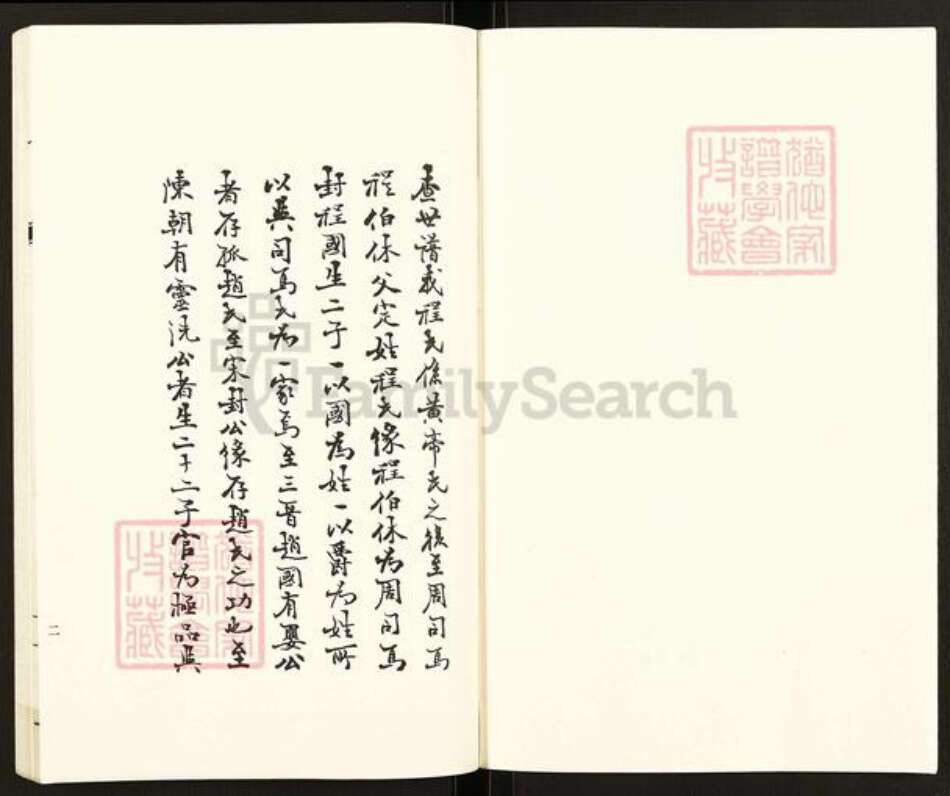 猶他家
譜學會
收藏
查世譜載程氏係黃帝氏之後至周司馬
程伯休父定姓程氏緣程伯休為周司馬
封程國生二子一以國為姓一以爵為姓所
以與司馬氏為一家焉至三晋趙國有嬰公
者存孤趙氏至宋封公緣存趙氏之功也至
陳朝有靈洗公者生二十二子官為極品與
猶他家
譜學會
收藏
二
FamilySearch